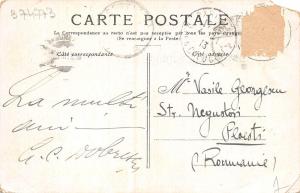 874773
CARTE POSTALE
La Correspondance au recto n'est pas acceptée par tous les pays étrangers
(Se renseigner à la Poste)
Côté correspondance
La multi
ani
G. C.
Mr Vasile Georgescu
Str. Negustori
Ploesti
(Roumanie)